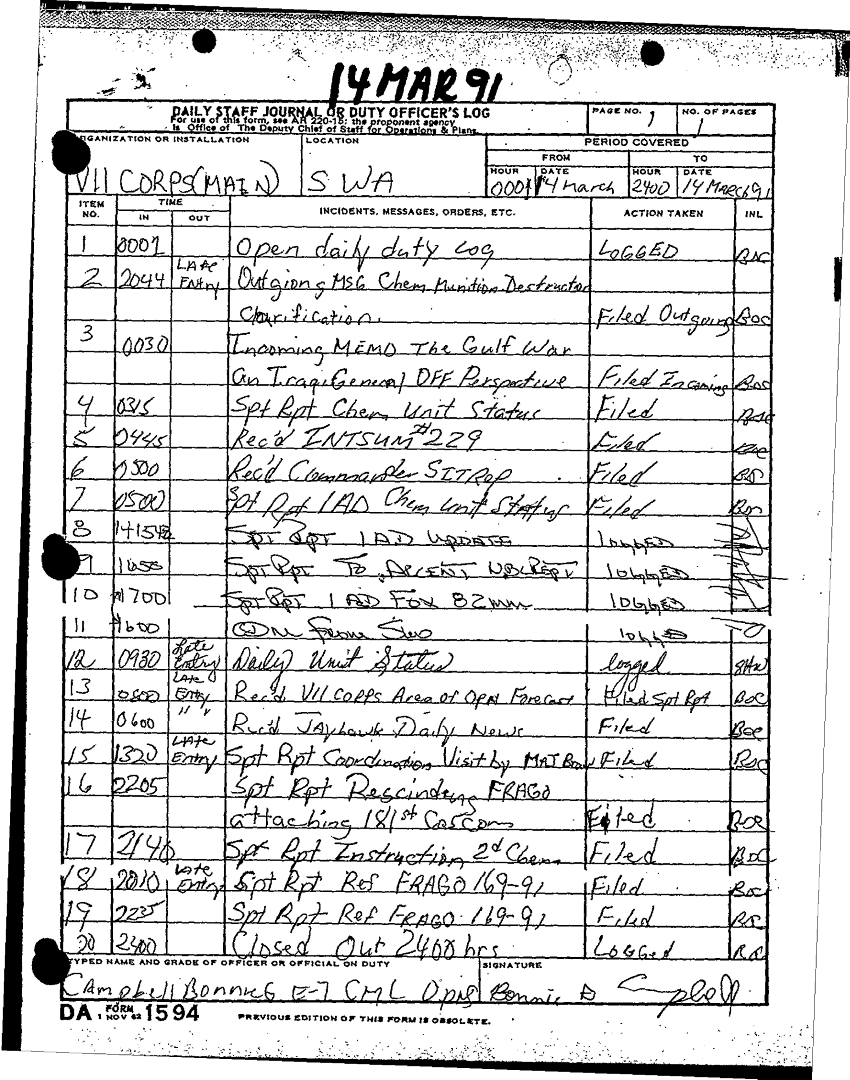 14 MAR 91
DAILY STAFF JOURNAL OR DUTY OFFICER'S LOG
For use of this form, see AR 220-15; the proponent agency
is Office of The Deputy Chief of Staff for Operations & Plans.
PAGE NO. 1
NO. OF PAGES 1
ORGANIZATION OR INSTALLATION
VII CORPS (MAIN)
LOCATION
SWA
PERIOD COVERED
FROM TO
HOUR DATE HOUR DATE
0001 14 March 2400 14 March 91
ITEM NO. TIME IN OUT INCIDENTS, MESSAGES, ORDERS, ETC. ACTION TAKEN INL
1 0001 Open daily duty log LOGGED
2 2044 Late Entry Outgiong MSG Chem Munition Destructon
Clarification. Filed Outgoing BOC
3 0030 Incoming MEMO The Gulf War
An Iraqi General OFF Perspective Filed Incoming
4 0315 Spt Rpt Chem Unit Status Filed
5 0445 Rec'd INTSUM #229 Filed
6 0500 Rec'd Commander SITREP Filed
7 0500 Spt Rpt 1AD Chem Unit Status Filed
8 141542 SPT RPT 1AD UPDATE logged
9 Spt Rpt To ARCENT NBC Rept logged
10 1700 Spt Rpt 1AD Fox 82mm logged
11 1600 From logged
12 0930 Late Entry Daily Unit Status logged
13 0500 Late Entry Rec'd VII CORPS Area of OPN Forecast Filed Spt Rpt BOC
14 0600 " " Rec'd JAyhawk Daily News Filed
15 1320 Late Entry Spt Rpt Coordination Visit by MAJ Filed
16 2205 Spt Rpt Rescinding FRAGO
attaching 181st Coscom Filed
17 2140 Spt Rpt Instruction 2d Chem Filed BOC
18 2010 Late Entry Spt Rpt Ref FRAGO 169-91 Filed
19 2235 Spt Rpt Ref FRAGO 169-91 Filed
20 2400 Closed Out 2400 hrs Logged
TYPED NAME AND GRADE OF OFFICER OR OFFICIAL ON DUTY
Campbell Bonnie G E-7 CML Opns
SIGNATURE
Bonnie Campbell
DA FORM 1 NOV 62 1594
PREVIOUS EDITION OF THIS FORM IS OBSOLETE.